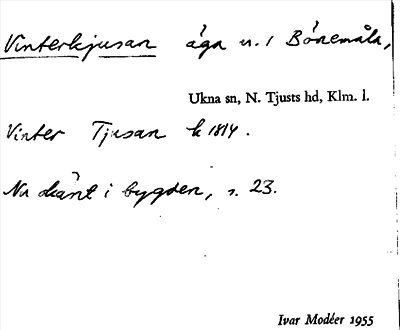 Vinterkjusan äga n. 1 Bönemåla,
Ukna sn, N. Tjusts hd, Klm. l.
Vinter Tjusan k 1814.
Nu känt i bygden, s. 23.
Ivar Modéer 1955